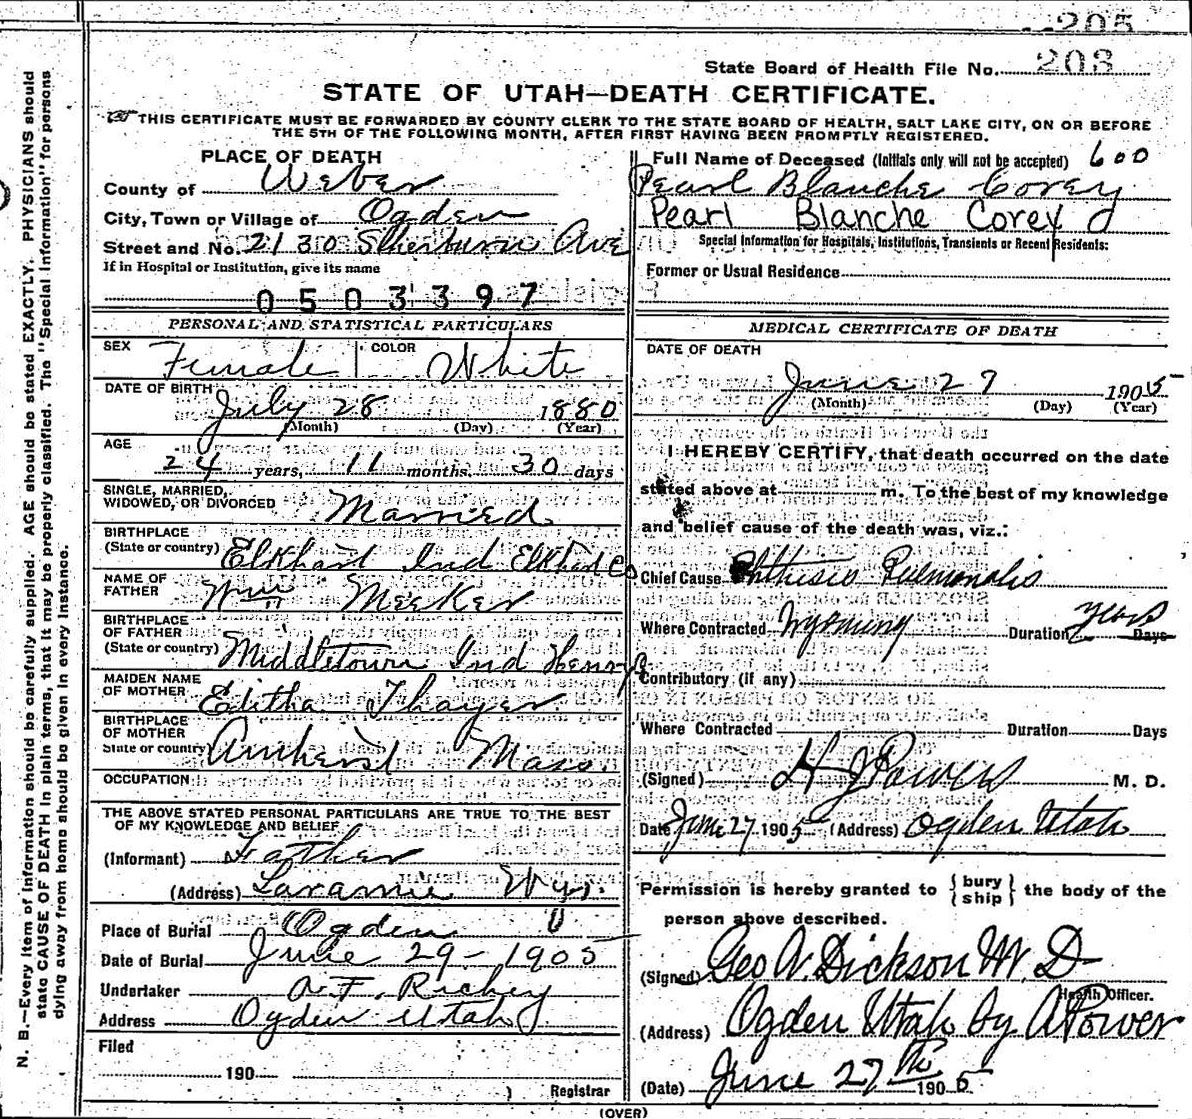 205
State Board of Health File No. 203
STATE OF UTAH—DEATH CERTIFICATE.
THIS CERTIFICATE MUST BE FORWARDED BY COUNTY CLERK TO THE STATE BOARD OF HEALTH, SALT LAKE CITY, ON OR BEFORE
THE 5TH OF THE FOLLOWING MONTH, AFTER FIRST HAVING BEEN PROMPTLY REGISTERED.
N. B.—Every item of information should be carefully supplied. AGE should be stated EXACTLY. PHYSICIANS should
state CAUSE OF DEATH in plain terms, that it may be properly classified. The "Special Information" for persons
dying away from home should be given in every instance.
PLACE OF DEATH
County of Weber
City, Town or Village of Ogden
Street and No. 2130 Sherburn Ave
If in Hospital or Institution, give its name
0503397
PERSONAL AND STATISTICAL PARTICULARS
SEX Female COLOR White
DATE OF BIRTH July 28 1880
(Month) (Day) (Year)
AGE
24 years, 11 months. 30 days
SINGLE, MARRIED,
WIDOWED, OR DIVORCED Married
BIRTHPLACE
(State or country) Elkhart Ind Elkhart Co
NAME OF
FATHER Wm Meeker
BIRTHPLACE
OF FATHER
(State or country) Middletown Ind Henry
MAIDEN NAME
OF MOTHER Editha Thayer
BIRTHPLACE
OF MOTHER
State or country) Amherst Mass.
OCCUPATION
THE ABOVE STATED PERSONAL PARTICULARS ARE TRUE TO THE BEST
OF MY KNOWLEDGE AND BELIEF
(Informant) Father
(Address) Laramie Wyo.
Place of Burial Ogden U
Date of Burial June 29- 1905
Undertaker A.F. Richey
Address Ogden Utah
Filed
190
Registrar
Full Name of Deceased (Initials only will not be accepted) 600
Pearl Blanche Corey
Pearl Blanche Corey
Special Information for Hospitals, Institutions, Transients or Recent Residents:
Former or Usual Residence
MEDICAL CERTIFICATE OF DEATH
DATE OF DEATH
June 27 1905
(Month) (Day) (Year)
I HEREBY CERTIFY, that death occurred on the date
stated above at m. To the best of my knowledge
and belief cause of the death was, viz.:
Chief Cause Phthisis Pulmonalis
Where Contracted Wyoming Duration years Days
Contributory (if any)
Where Contracted Duration Days
(Signed) H J Powers M. D.
Date June 27 1905 (Address) Ogden Utah
Permission is hereby granted to { bury ship } the body of the
person above described.
(Signed) Geo W. Dickson M. D
Health Officer.
(Address) Ogden Utah by A Power
(Date) June 27th 1905
(OVER)